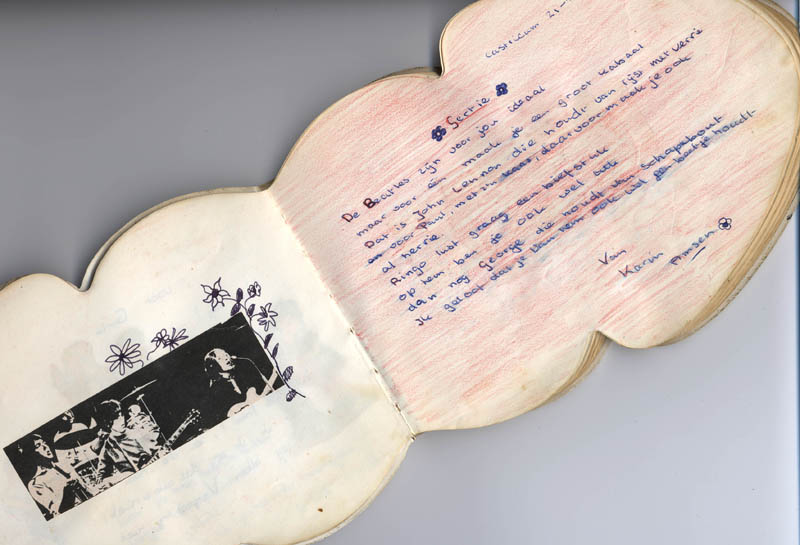 Castricum 21-
Gertie
De Beatles zijn voor jou ideaal
maar voor één maak je een groot kabaal
Dat is John Lennon die houdt van rijst met kerrie
en voor Paul, met z'n haar, daarvoor maak je ook
al herrie.
Ringo lust graag een biefstuk
op hem ben je ook wel tuk
dan nog George die houdt van schapebout
ik geloof dat je van hem ook wel een beetje houdt
Van
Karin